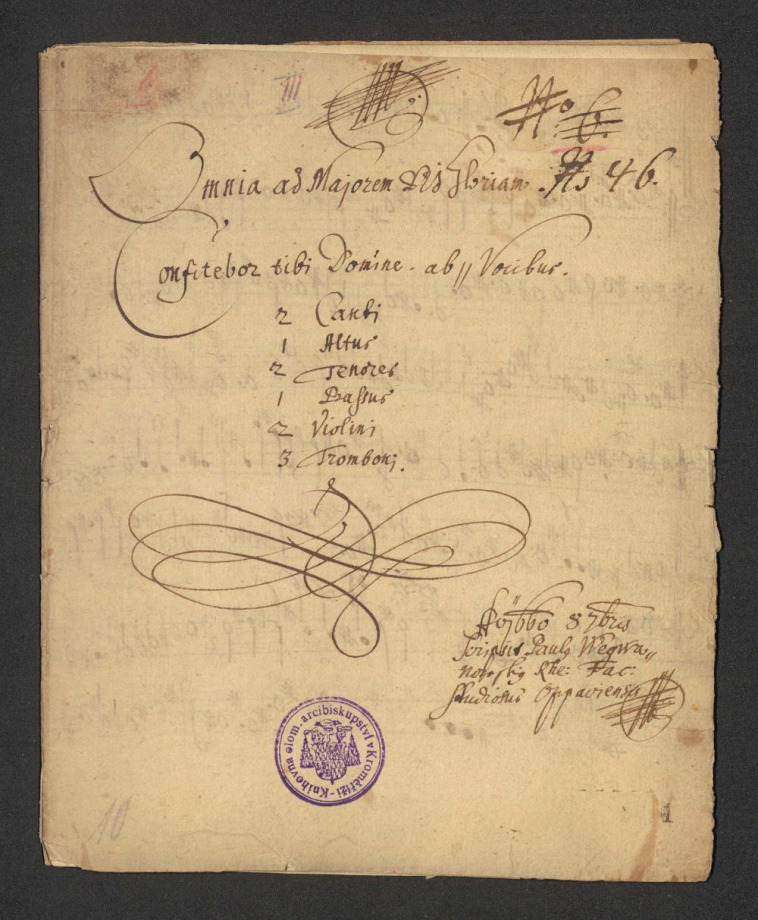 III
No 6.
Omnia ad Majorem DEI Gloriam. No 46.
Confitebor tibi Domine. ab 11 Vocibus.
2 Canti
1 Altus
2 Tenores
1 Bassus
2 Violini
3 Tromboni.
Ao 1660 8 7bris
Scripsit Paul9 Wegwa„
nowsky Rhe: Fac:
Studiosus Oppaviensis
Knihovna olom. arcibiskupství v Kroměříži
10
1